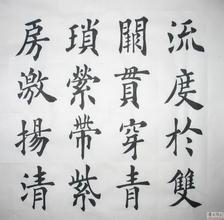 流度於雙
闕貫穿青
瑣縈帶紫
房激揚清